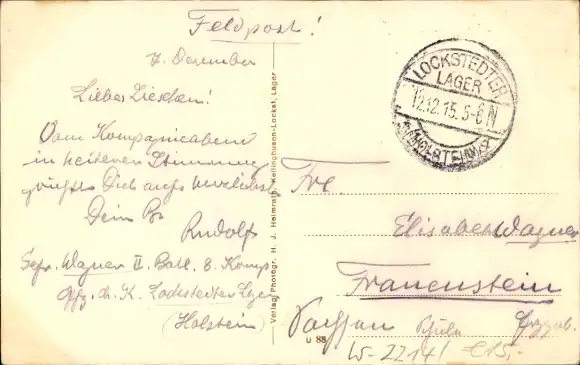 Feldpost!
7. Dezember
Liebes Lieschen!
Vom Kompagnieabend
in heiterer Stimmung
grüßt Dich aufs herzlichste
Dein
Rudolf
Gefr. Wagner II. Batl. 8. Komp.
Lockstedter Lager
(Holstein)
Verlag Photogr. H. J. Heimrath, Kellinghusen-Lockst. Lager
LOCKSTEDTER
LAGER
12.12.15. 5-6 N
(HOLSTEIN)
Elisabeth Wagner
Frauenstein
Sachsen Erzgeb.
u 88
W-2214/ €15,-